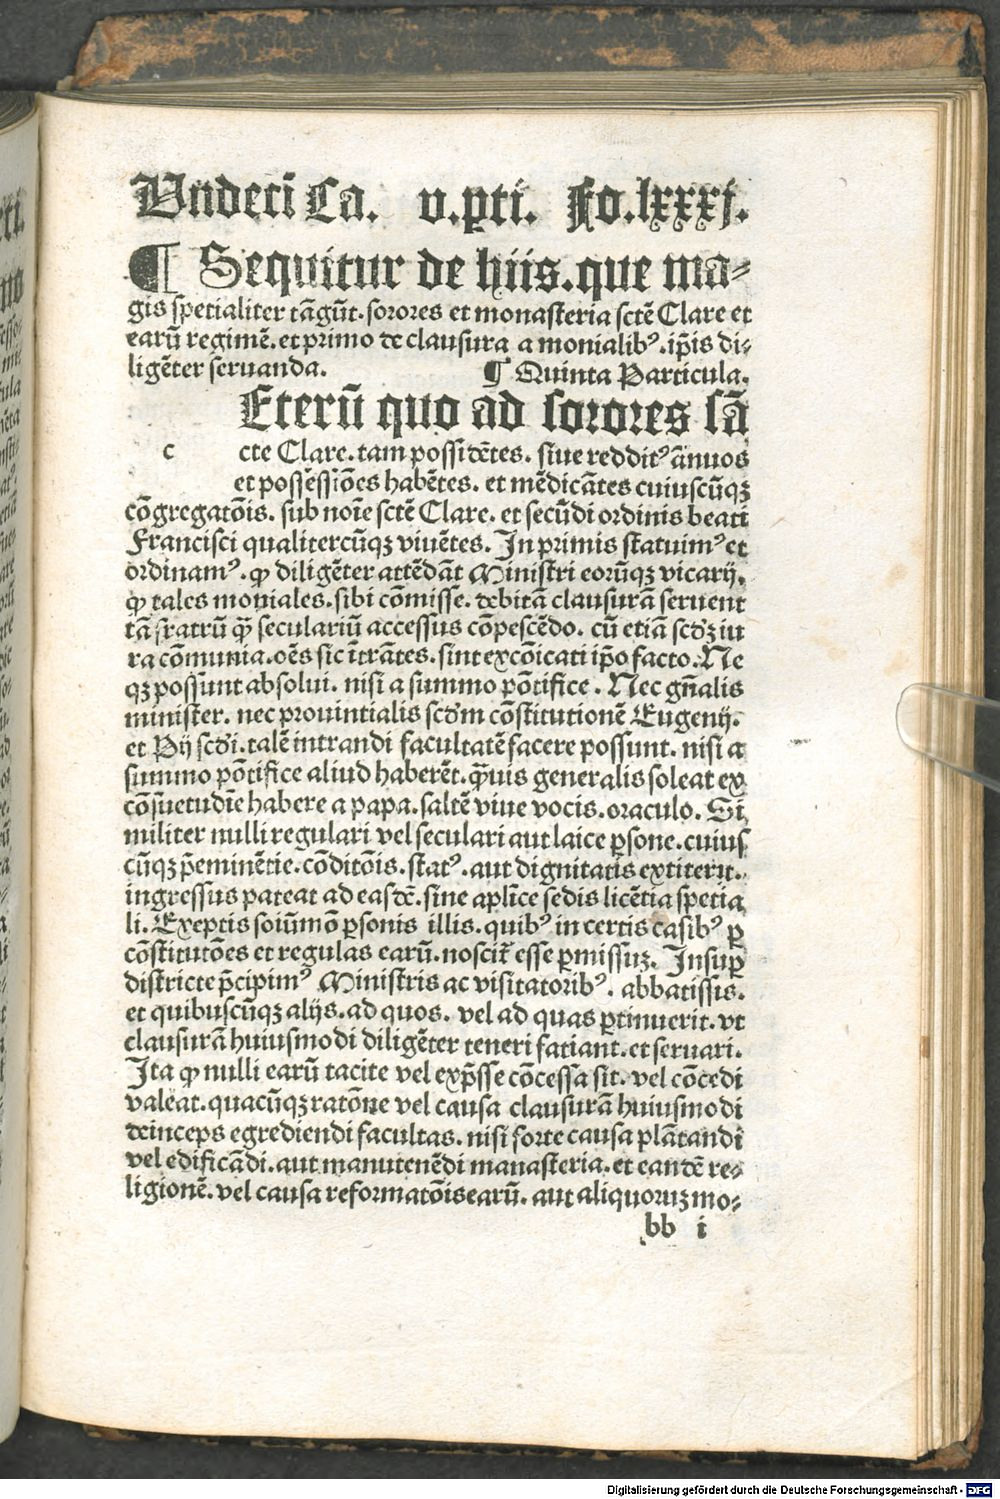 Undeci Ca. v.ꝑti. Fo.lxxxj.
¶ Sequitur de hiis.que ma⸗
gis spetialiter tāgūt. sorores et monasteria sctē Clare et
earū regimē. et primo de clausura a monialibꝰ. ip̄is di⸗
ligēter seruanda. ¶ Quinta Particula.
Eterū quo ad sorores sā
c cte Clare. tam possidētes. siue redditꝰ ānuos
et possēssiōes habētes. et mēdicātes cuiuscūqꝫ
cōgregatōis. sub noīe sctē Clare. et secūdi ordinis beati
Francisci qualitercūqꝫ viuētes. In primis statuimꝰ et
ordinamꝰ. ꝙ diligēter attēdāt Ministri eorūqꝫ vicarij.
ꝙ tales moniales. sibi cōmisse. debitā clausurā seruent
tā fratrū qꝫ̄ seculariū accessus cōpescēdo. cū etiā scdꝫ iu
ra cōmunia. oēs sic ītrātes. sint excōicati ip̄o facto. Ne
qꝫ possunt absolui. nisi a summo pōtifice. Nec gn̄alis
minister. nec prouintialis scdm cōstitutionē Eugenij.
et Pij scdi. talē intrandi facultatē facere possunt. nisi a
summo pōtifice aliud haberēt. qꝫ̄uis generalis soleat ex
cōsuetudīe habere a papa. saltē viue vocis. oraculo. Si
militer nulli regulari vel seculari aut laice ꝑsone. cuius
cūqꝫ p̄eminētie. cōditōis. statꝰ. aut dignitatis extiterit.
ingressus pateat ad easdē. sine aplīce sedis licētia spetia
li. Exeptis soiūmō ꝑsonis illis. quibꝰ in certis casibꝰ ꝑ
cōstitutōes et regulas earū. noscit᷑ esse ꝑmissuꝫ. Insuꝑ
districte p̄cipimꝰ Ministris ac visitatoribꝰ. abbatissis.
et quibuscūqꝫ alijs. ad quos. vel ad quas ꝑtinuerit. vt
clausurā huiusmodi diligēter teneri fatiant. et seruari.
Ita ꝙ nulli earū tacite vel exp̄sse cōcessa sit. vel cōcedi
valeat. quacūqꝫ ratōne vel causa clausurā huiusmodi
deinceps egrediendi facultas. nisi forte causa plātandi
vel edificādi. aut manutenēdi manasteria. et eandē re⸗
ligionē. vel causa reformatōis earū. aut aliquoruꝫ mo⸗
bb i
Digitalisierung gefördert durch die Deutsche Forschungsgemeinschaft - DFG